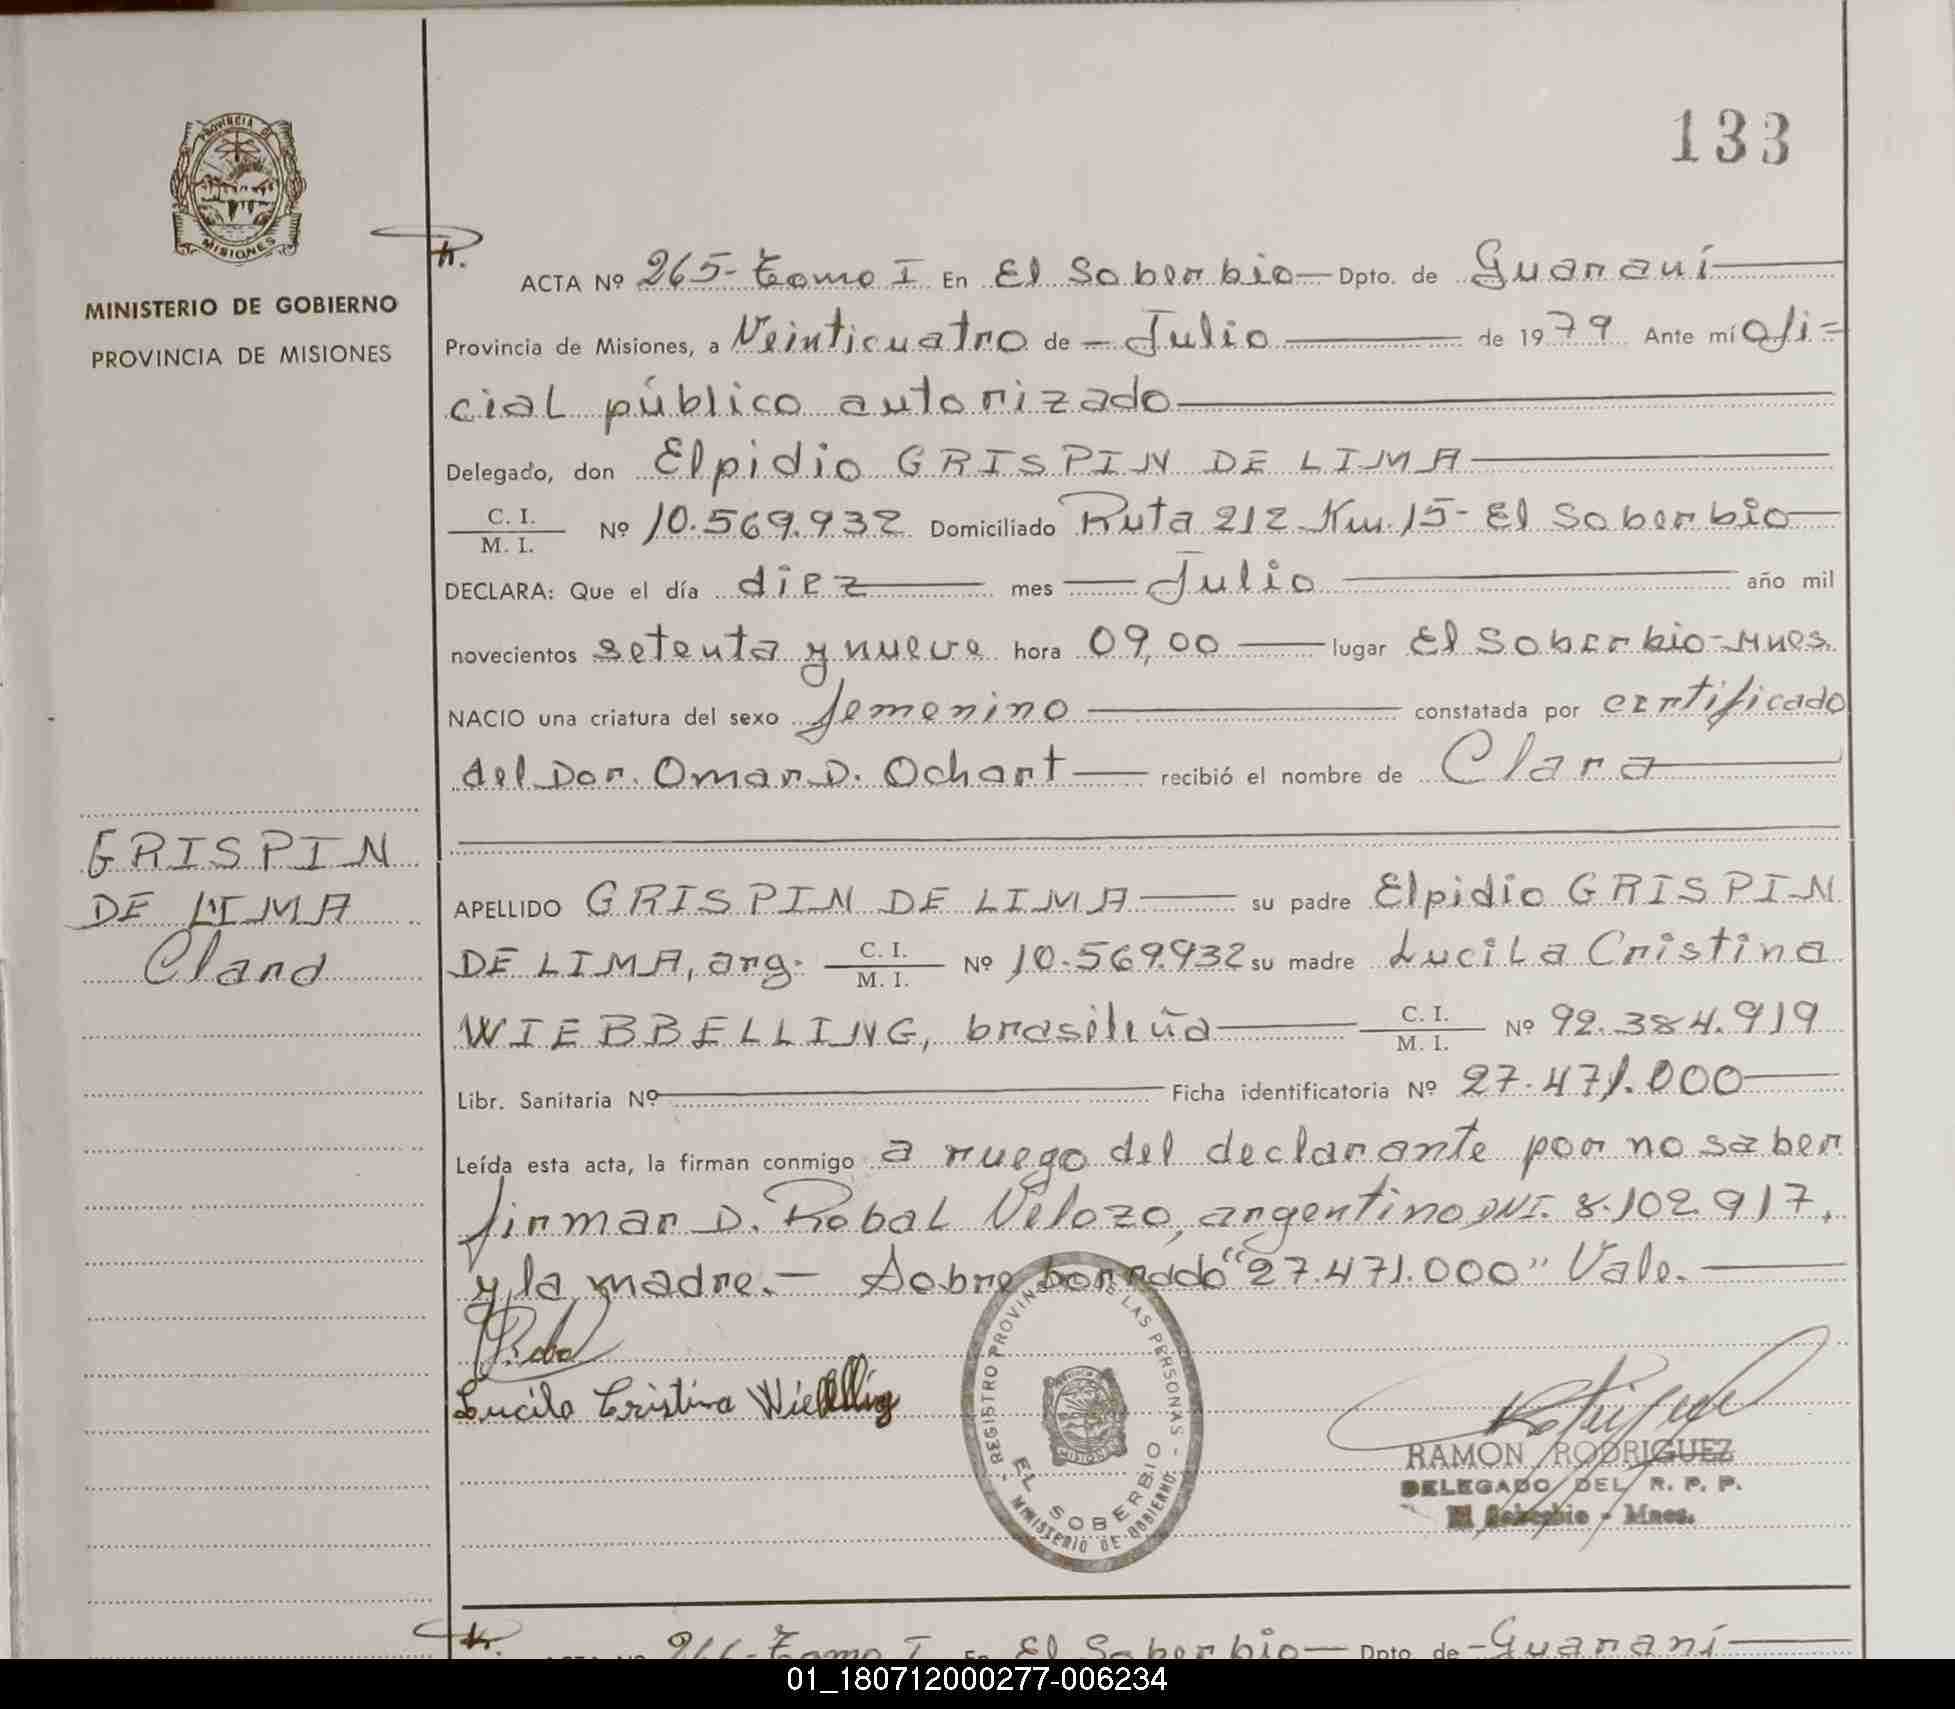 133
PROVINCIA DE
MISIONES
MINISTERIO DE GOBIERNO
PROVINCIA DE MISIONES
ACTA Nº 265- Tomo I En El Soberbio- Dpto. de Guaraní
Provincia de Misiones, a Veinticuatro de Julio de 1979 Ante mí Ofi=
cial público autorizado
Delegado, don Elpidio GRISPIN DE LIMA
C. I.
M. I.
Nº 10.569.932 Domiciliado Ruta 212 Km. 15- El Soberbio
DECLARA: Que el día diez mes Julio año mil
novecientos setenta y nueve hora 09,00 lugar El Soberbio-Mnes.
NACIO una criatura del sexo femenino constatada por certificado
del Dor. Omar D. Ochart recibió el nombre de Clara
GRISPIN
DE LIMA
Clara
APELLIDO GRISPIN DE LIMA su padre Elpidio GRISPIN
DE LIMA, arg. C. I. M. I. Nº 10.569.932 su madre Lucila Cristina
WIEBBELLING, brasileña C. I. M. I. Nº 92.384.919
Libr. Sanitaria Nº Ficha identificatoria Nº 27.471.000
Leída esta acta, la firman conmigo a ruego del declarante por no saber
firmar D. Robal Velozo, argentino DNI. 8.102.917,
y la madre.- Sobre borrado "27.471.000" Vale.
Lucila Cristina
REGISTRO PROVINCIAL DE LAS PERSONAS
EL SOBERBIO
MINISTERIO DE GOBIERNO
MISIONES
RAMON RODRIGUEZ
DELEGADO DEL R. P. P.
El Soberbio - Mnes.
ACTA Nº 266- Tomo I En El Soberbio- Dpto. de Guaraní
01_180712000277-006234